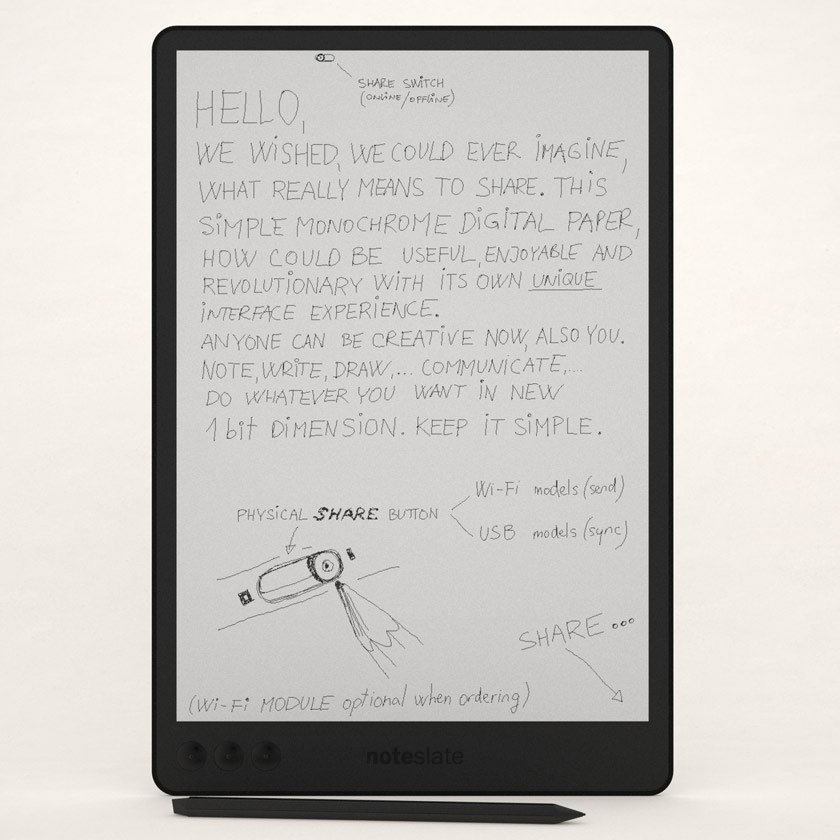 SHARE SWITCH
(ONLINE/OFFLINE)
HELLO,
WE WISHED, WE COULD EVER IMAGINE,
WHAT REALLY MEANS TO SHARE. THIS
SIMPLE MONOCHROME DIGITAL PAPER,
HOW COULD BE USEFUL, ENJOYABLE AND
REVOLUTIONARY WITH ITS OWN UNIQUE
INTERFACE EXPERIENCE.
ANYONE CAN BE CREATIVE NOW, ALSO YOU.
NOTE, WRITE, DRAW,... COMMUNICATE,....
DO WHATEVER YOU WANT IN NEW
1 bit DIMENSION. KEEP IT SIMPLE.
Wi-Fi models (send)
PHYSICAL SHARE BUTTON
USB models (sync)
SHARE...
(Wi-Fi MODULE optional when ordering)
noteslate